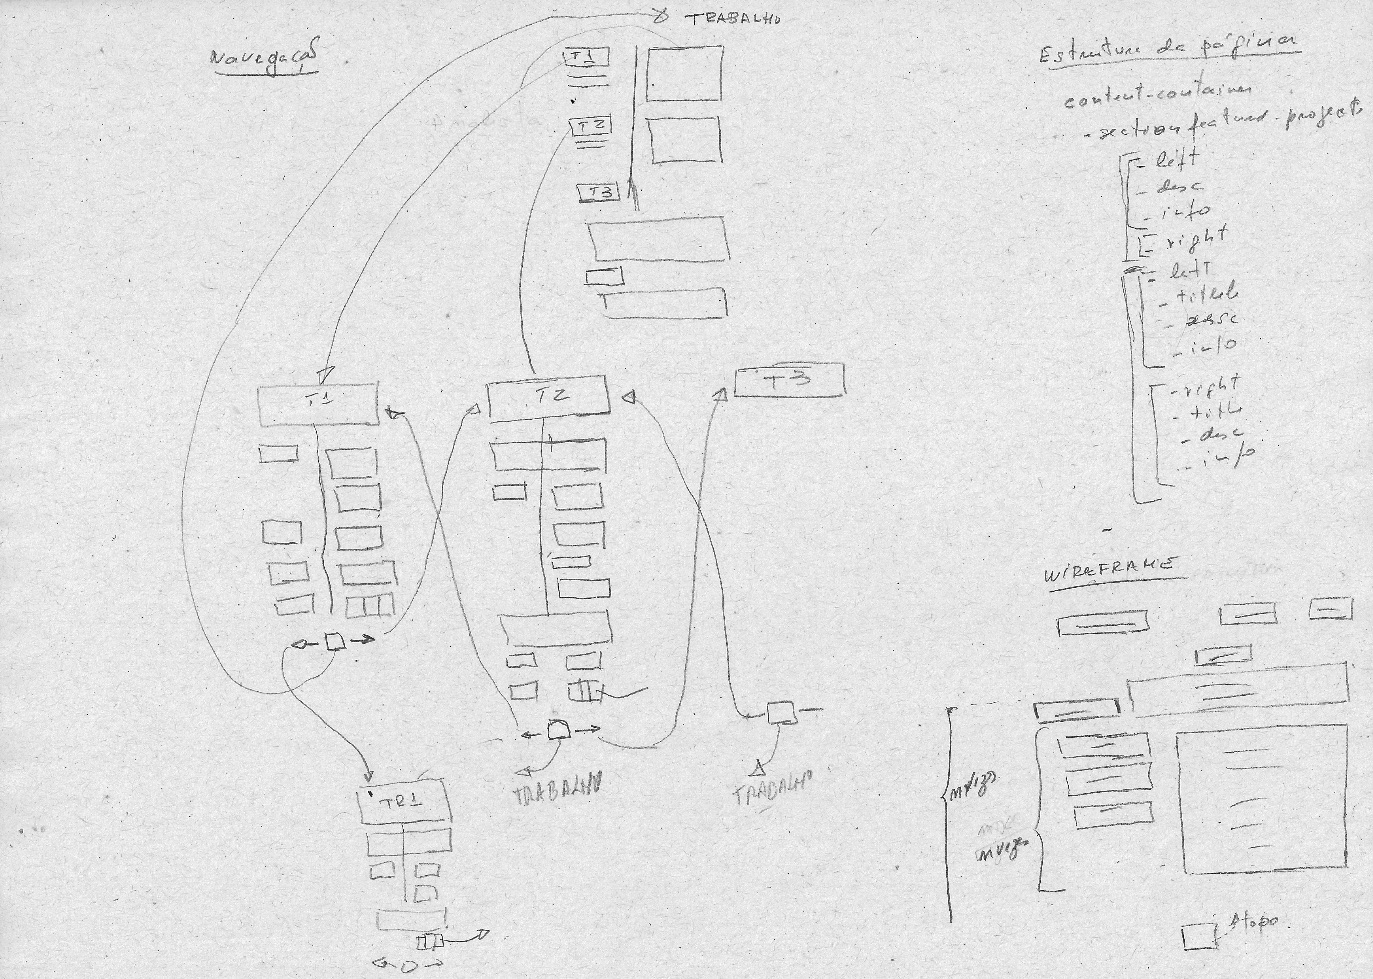 TRABALHO
Navegação
T1
T2
T3
T1
T2
T3
TRABALHO
TRABALHO
TR1
Estrutura da página
content-container
- section featured-projects
- left
- desc
- info
- right
- left
- title
- desc
- info
- right
- title
- desc
- info
WIREFRAME
nvezes
nvezes
topo